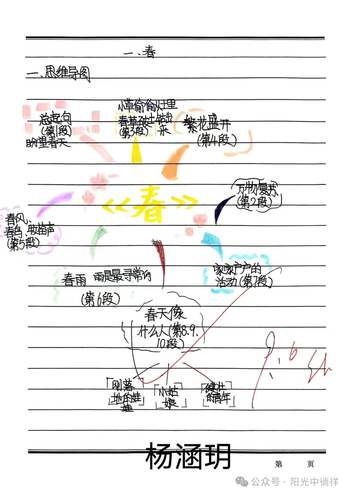 一.春
一.思维导图
总起句
(第1段)
盼望春天
小草偷偷从土里
(第3段)
繁花盛开
(第4段)
万物复苏
(第2段)
《春》
春风、
(第5段)
春雨
雨是最寻常的
(第6段)
家家户户的
活动(第7段)
春天像
什么人(第8.9.
10段)
「刚落
地的娃
娃」
「小姑
娘」
「健壮
的青年」
杨涵玥
第 页
公众号·阳光中徜徉